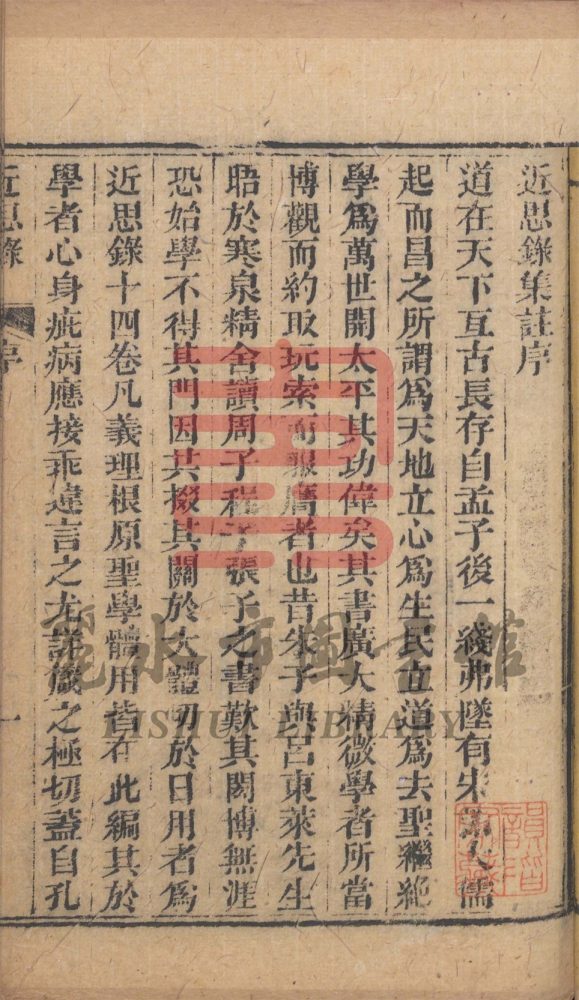 近思錄集註序
道在天下亙古長存自孟子後一綫弗墜有宋諸大儒
起而昌之所謂為天地立心為生民立道為去聖繼絶
學為萬世開太平其功偉矣其書廣大精微學者所當
博觀而約取玩索而服膺者也昔朱子與呂東萊先生
晤於寒泉精舍讀周子程子張子之書歎其閎博無涯
恐始學不得其門因共掇其關於大體切於日用者為
近思錄十四卷凡義理根原聖學體用皆在此編其於
學者心身疵病應接乖違言之尤詳箴之極切蓋自孔
近思錄
序
一
麗水市圖書館
LISHUI LIBRARY